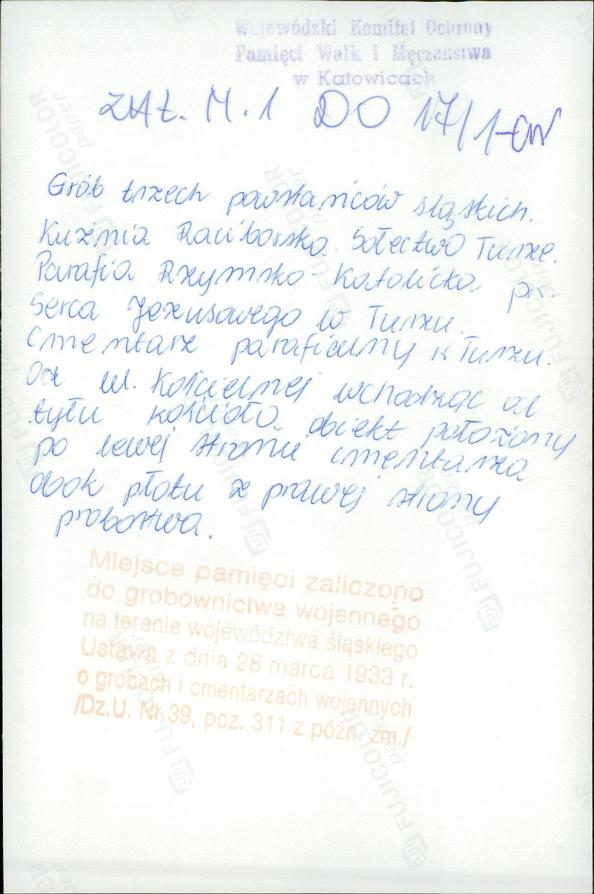 Wojewódzki Komitet Ochrony
Pamięci Walk i Męczeństwa
w Katowicach
ZAŁ. N. 1 DO 17/1-CW
Grób trzech powstańców śląskich.
Kuźnia Raciborska. Sołectwo Turze.
Parafia Rzymsko Katolicka p.
Serca Jezusowego w Turzu.
Cmentarz parafialny w Turzu.
Od ul. Kościelnej wchodząc od
tyłu kościoła obiekt położony
po lewej stronie cmentarza
obok płotu z prawej strony
probostwa.
Miejsce pamięci zaliczono
do grobownictwa wojennego
na terenie województwa śląskiego
Ustawa z dnia 28 marca 1933 r.
o grobach i cmentarzach wojennych
/Dz.U. Nr 39, poz. 311 z późn. zm./
FUJICOLOR
paper